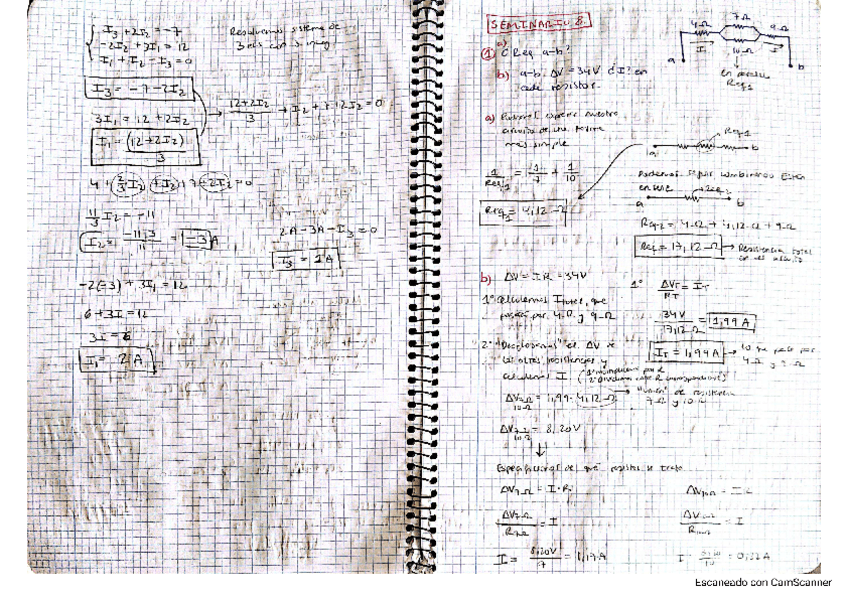 I₃ + 2I₂ = -7
-2I₂ + 3I₁ = 12
I₁ + I₂ - I₃ = 0
Resolvemos sistema de
3 ecs con 3 incog
I₃ = -7 - 2I₂
3I₁ = 12 + 2I₂
I₁ = (12 + 2I₂) / 3
→ (12 + 2I₂) / 3 + I₂ + 7 + 2I₂ = 0
4 + (2/3) I₂ + I₂ + 7 + 2I₂ = 0
11/3 I₂ = -11
I₂ = -11·3 / 11 = -3 A
2A - 3A - I₃ = 0
-2(-3) + 3I₁ = 12
6 + 3I = 12
3I = 6
I₁ = 2 A
SEMINARIO 8.
① a) ¿Req a-b?
b) a-b ΔV = 34V ¿I? en
cada resistor.
4Ω 7Ω 9Ω
10Ω
a b
en paralelo
Req₁
a) Podemos expresar nuestro
circuito de una forma
más simple
1/Req₁ = 1/7 + 1/10
Req₁ = 4,12 Ω
a Req₁ b
Podemos seguir combinando
en serie
a Req₂ b
Req₂ = 4Ω + 4,12Ω + 9Ω
Req = 17,12 Ω → Resistencia total
en el circuito
b) ΔV = I·R = 34V
1º Calculamos que
pasará por 4Ω y 9Ω
1º ΔV_T / R_T = I_T
34V / 17,12Ω = 1,99 A
I_T = 1,99A → lo que pasa por
4Ω y 9Ω
2º el ΔV de
las otras resistencias y
calculamos I
ΔV 7Ω 10Ω = 1,99 · 4,12Ω
de resistencia
7Ω y 10Ω
ΔV 7Ω 10Ω = 8,20V
Especificamos de qué resistor se trata
ΔV 7Ω = I·R
ΔV 10Ω = I·R
ΔV 7Ω / R 7Ω = I
ΔV 10Ω / R 10Ω = I
I = 8,20V / 7 = 1,17A
I = 8,20 / 10 = 0,82A
Escaneado con CamScanner